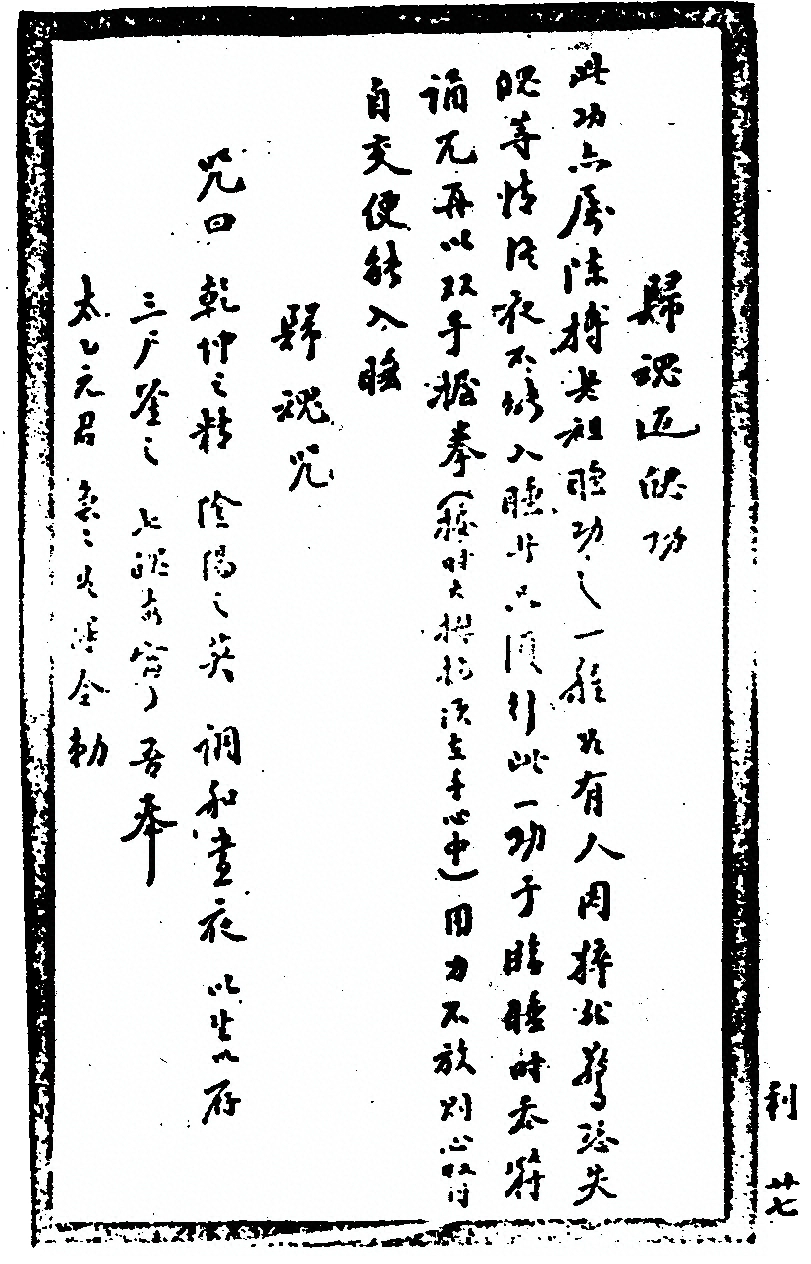 歸魂返魄功
此功亦屬陳摶老祖睡功之一種如有人因猝然驚恐失
魄等情況夜不能入睡者只須行此一功于臨睡時吞符
誦咒再以双手握拳(握時大拇指須在手心中)用力不放則心腎
自交便能入睡
歸魂咒
咒曰 乾坤之精 陰陽之英 調和晝夜 以生以存
三尸釜之 七魄安寧 吾奉
太乙元君 急急火速令勅
利 廿七